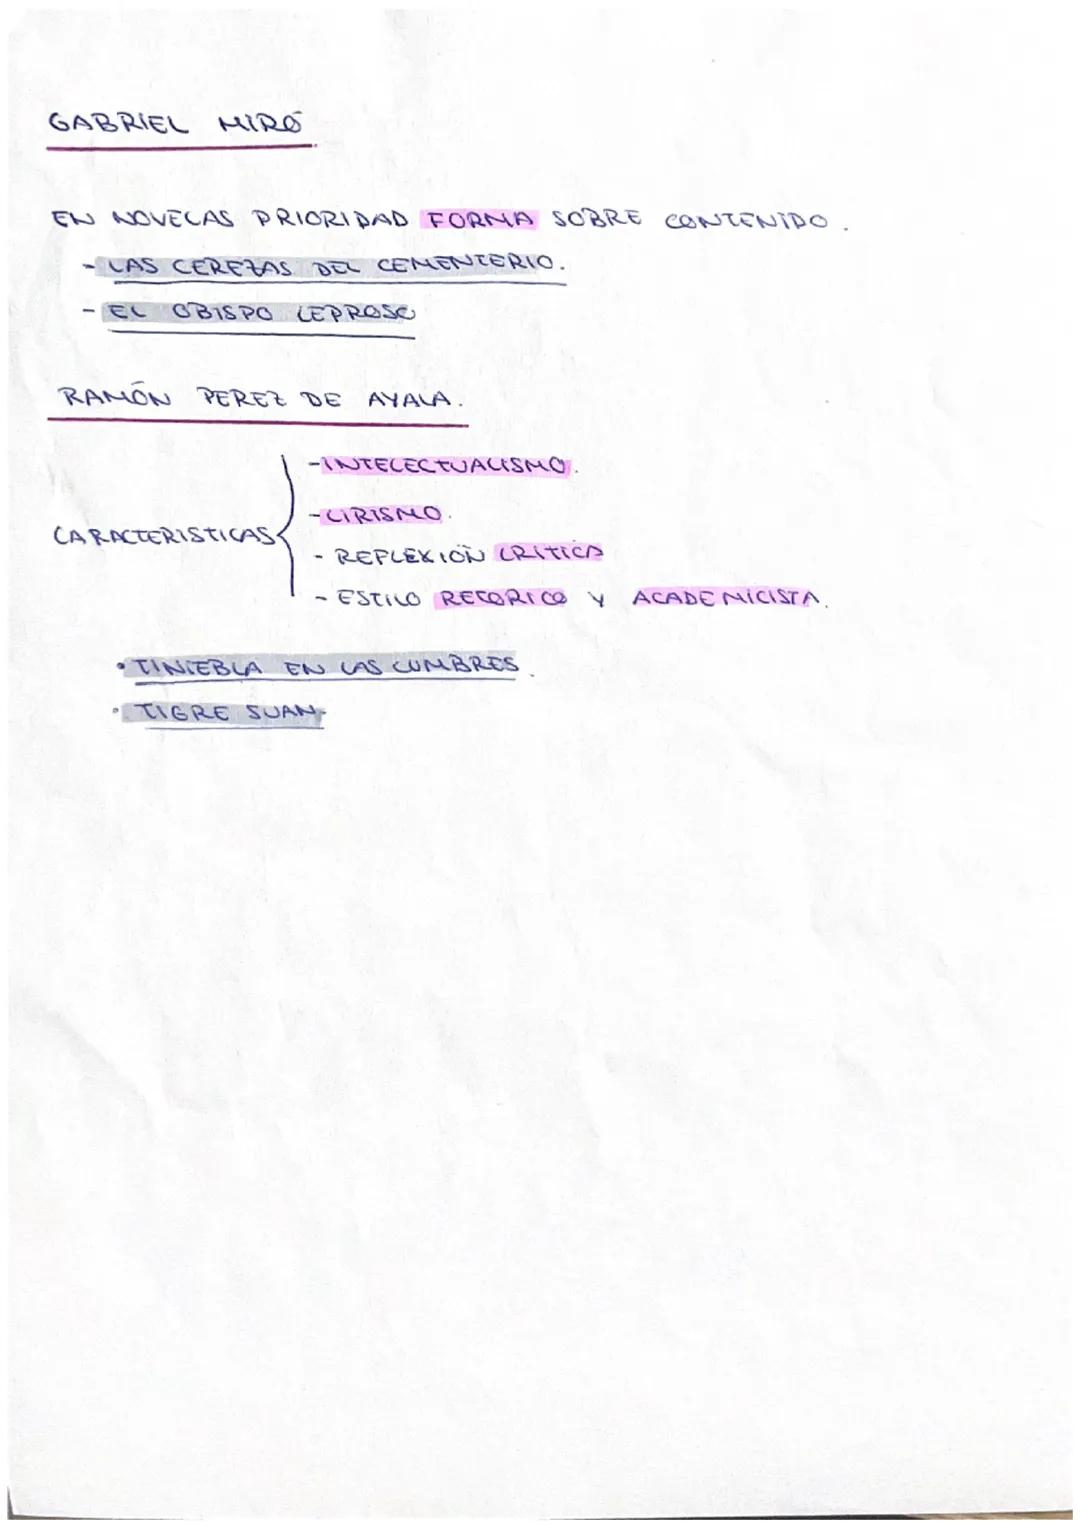 GABRIEL MIRÓ
EN NOVELAS PRIORIDAD FORMA SOBRE CONTENIDO.
- LAS CEREZAS DEL CEMENTERIO.
- EL OBISPO LEPROSO
RAMÓN PEREZ DE AYALA.
CARACTERISTICAS
- INTELECTUALISMO.
- LIRISMO.
- REFLEXIÓN CRITICA
- ESTILO RETORICO Y ACADEMICISTA.
• TINIEBLA EN LAS CUMBRES.
• TIGRE JUAN.